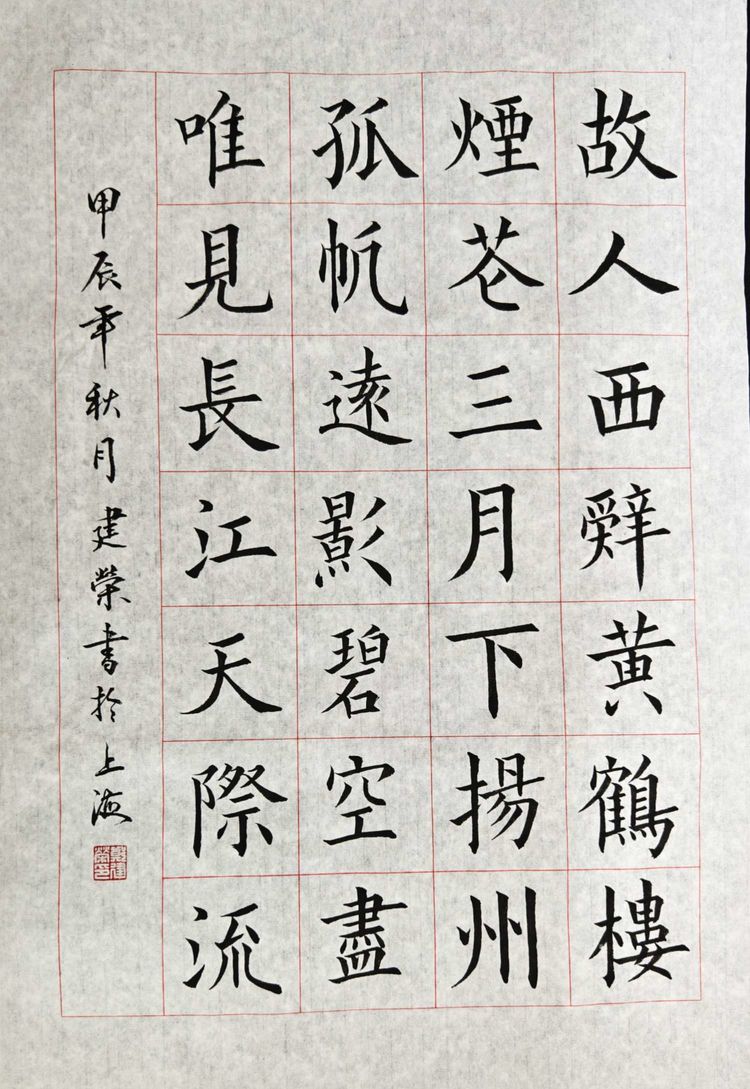 故人西辤黄鶴樓
煙花三月下揚州
孤帆遠影碧空盡
唯見長江天際流
甲辰年秋月建榮書於上海